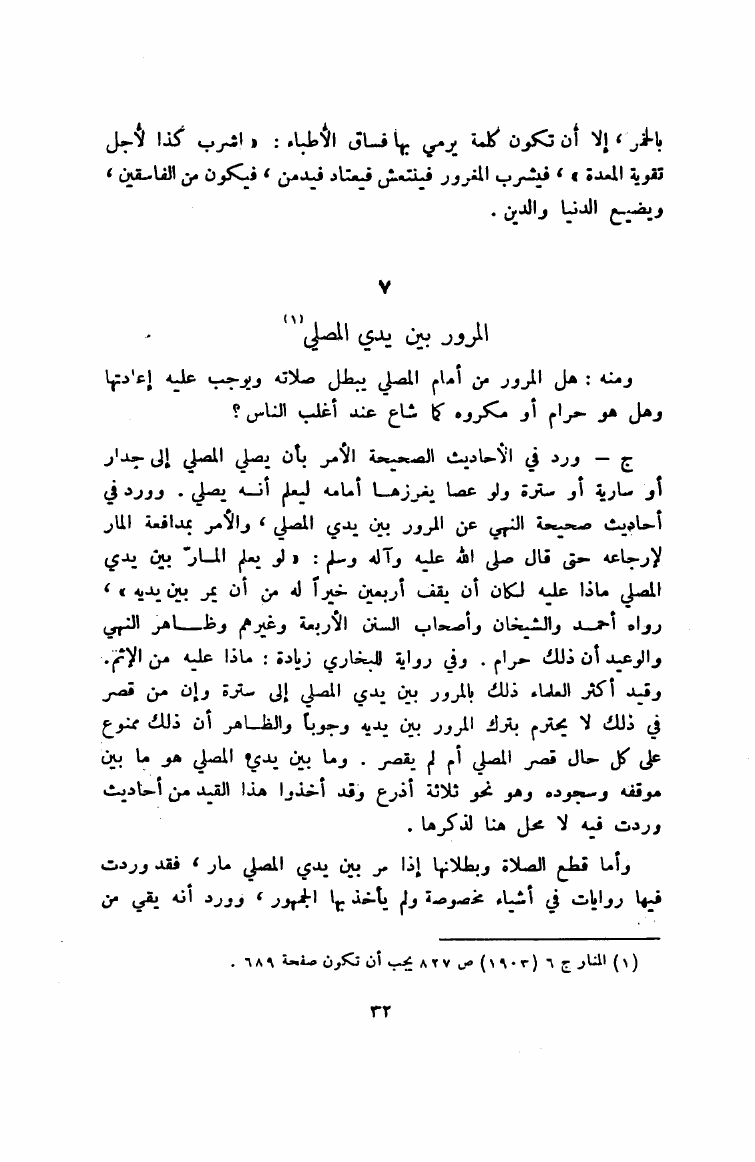 بالخمر ، إلا أن تكون كلمة يرمي بها فساق الأطباء : « اشرب كذا لأجل
تقوية المعدة » ، فيشرب المغرور فينتعش فيعتاد فيدمن ، فيكون من الفاسقين ،
ويضيع الدنيا والدين .
٧
المرور بين يدي المصلي (١)
ومنه : هل المرور من أمام المصلي يبطل صلاته ويوجب عليه إعادتها
وهل هو حرام أو مكروه كما شاع عند أغلب الناس ؟
ج – ورد في الأحاديث الصحيحة الأمر بأن يصلي المصلي إلى جدار
أو سارية أو سترة ولو عصا يغرزها أمامه ليعلم أنه يصلي . وورد في
أحاديث صحيحة النهي عن المرور بين يدي المصلي ، والأمر بمدافعة المار
لإرجاعه حتى قال صلى الله عليه وآله وسلم : « لو يعلم المارّ بين يدي
المصلي ماذا عليه لكان أن يقف أربعين خيراً له من أن يمر بين يديه » ،
رواه أحمد والشيخان وأصحاب السنن الأربعة وغيرهم وظاهر النهي
والوعيد أن ذلك حرام . وفي رواية للبخاري زيادة : ماذا عليه من الإثم.
وقيد أكثر العلماء ذلك بالمرور بين يدي المصلي إلى سترة وإن من قصر
في ذلك لا يحترم بترك المرور بين يديه وجوباً والظاهر أن ذلك ممنوع
على كل حال قصر المصلي أم لم يقصر . وما بين يدي المصلي هو ما بين
موقفه وسجوده وهو نحو ثلاثة أذرع وقد أخذوا هذا القيد من أحاديث
وردت فيه لا محل هنا لذكرها .
وأما قطع الصلاة وبطلانها إذا مر بين يدي المصلي مار ، فقد وردت
فيها روايات في أشياء مخصوصة ولم يأخذ بها الجمهور ، وورد أنه يقي من
(١) المنار ج ٦ (١٩٠٣) ص ٨٢٧ يجب أن تكون صفحة ٦٨٩ .
٣٢